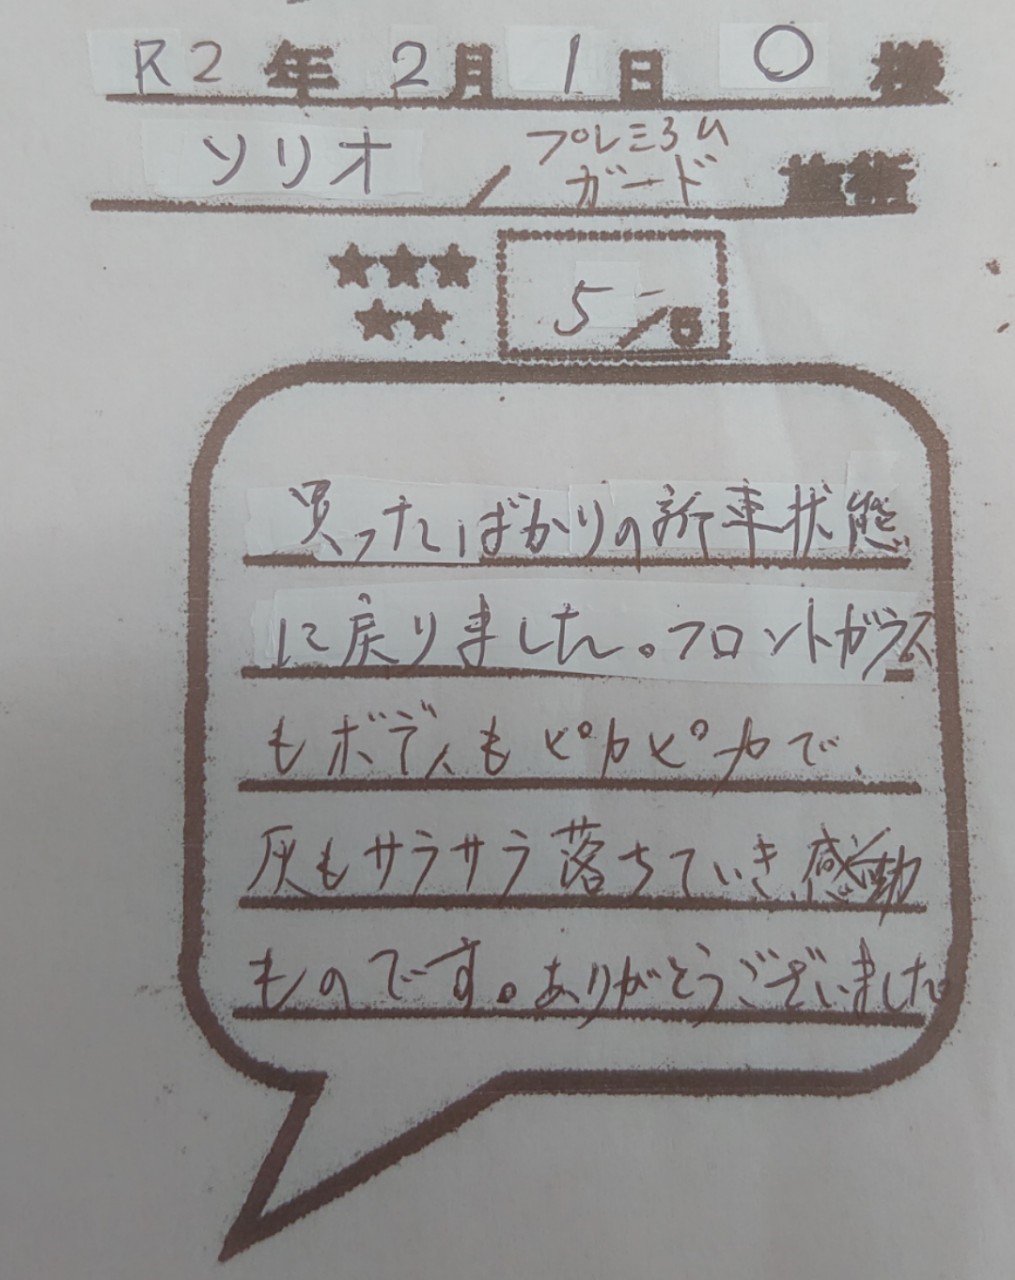 R2年2月1日 O 様
ソリオ / プレミアム
ガード 施術
★★★
★★
5/5
買ったばかりの新車状態
に戻りました。フロントガラス
もボディもピカピカで、
灰もサラサラ落ちていき、感動
ものです。ありがとうございました。